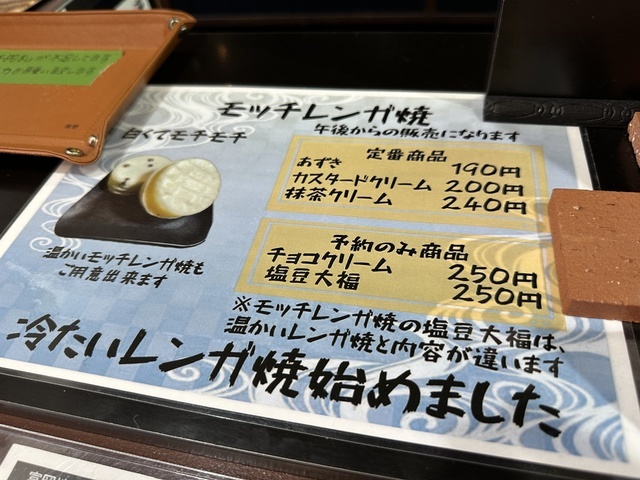 モッチレンガ焼
午後からの販売になります
白くてモチモチ
定番商品
あずき 190円
カスタードクリーム 200円
抹茶クリーム 240円
温かいモッチレンガ焼も
ご用意出来ます
予約のみ商品
チョコクリーム 250円
塩豆大福 250円
※モッチレンガ焼の塩豆大福は、
温かいレンガ焼と内容が違います
冷たいレンガ焼始めました